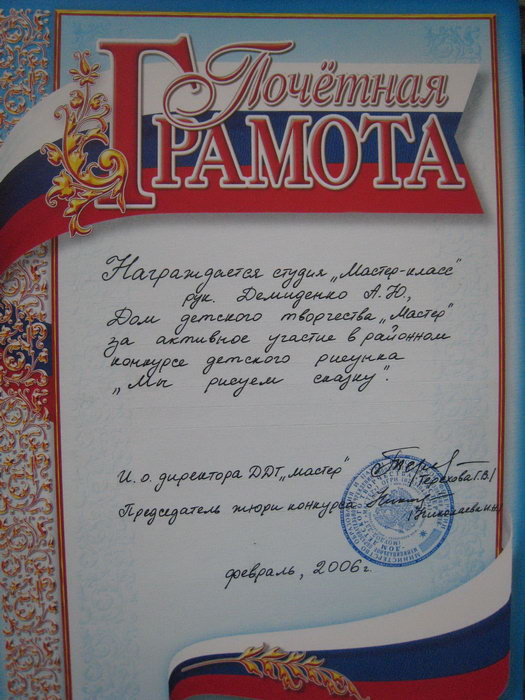 Почётная
ГРАМОТА
Награждается студия „Мастер-класс"
рук. Демиденко А.Ю.,
Дом детского творчества „Мастер"
за активное участие в районном
конкурсе детского рисунка
„Мы рисуем сказку".
И.о. директора ДДТ „Мастер"
/Терехова Г.В./
Председатель жюри конкурса
/Николаева Н.Н./
февраль, 2006 г.